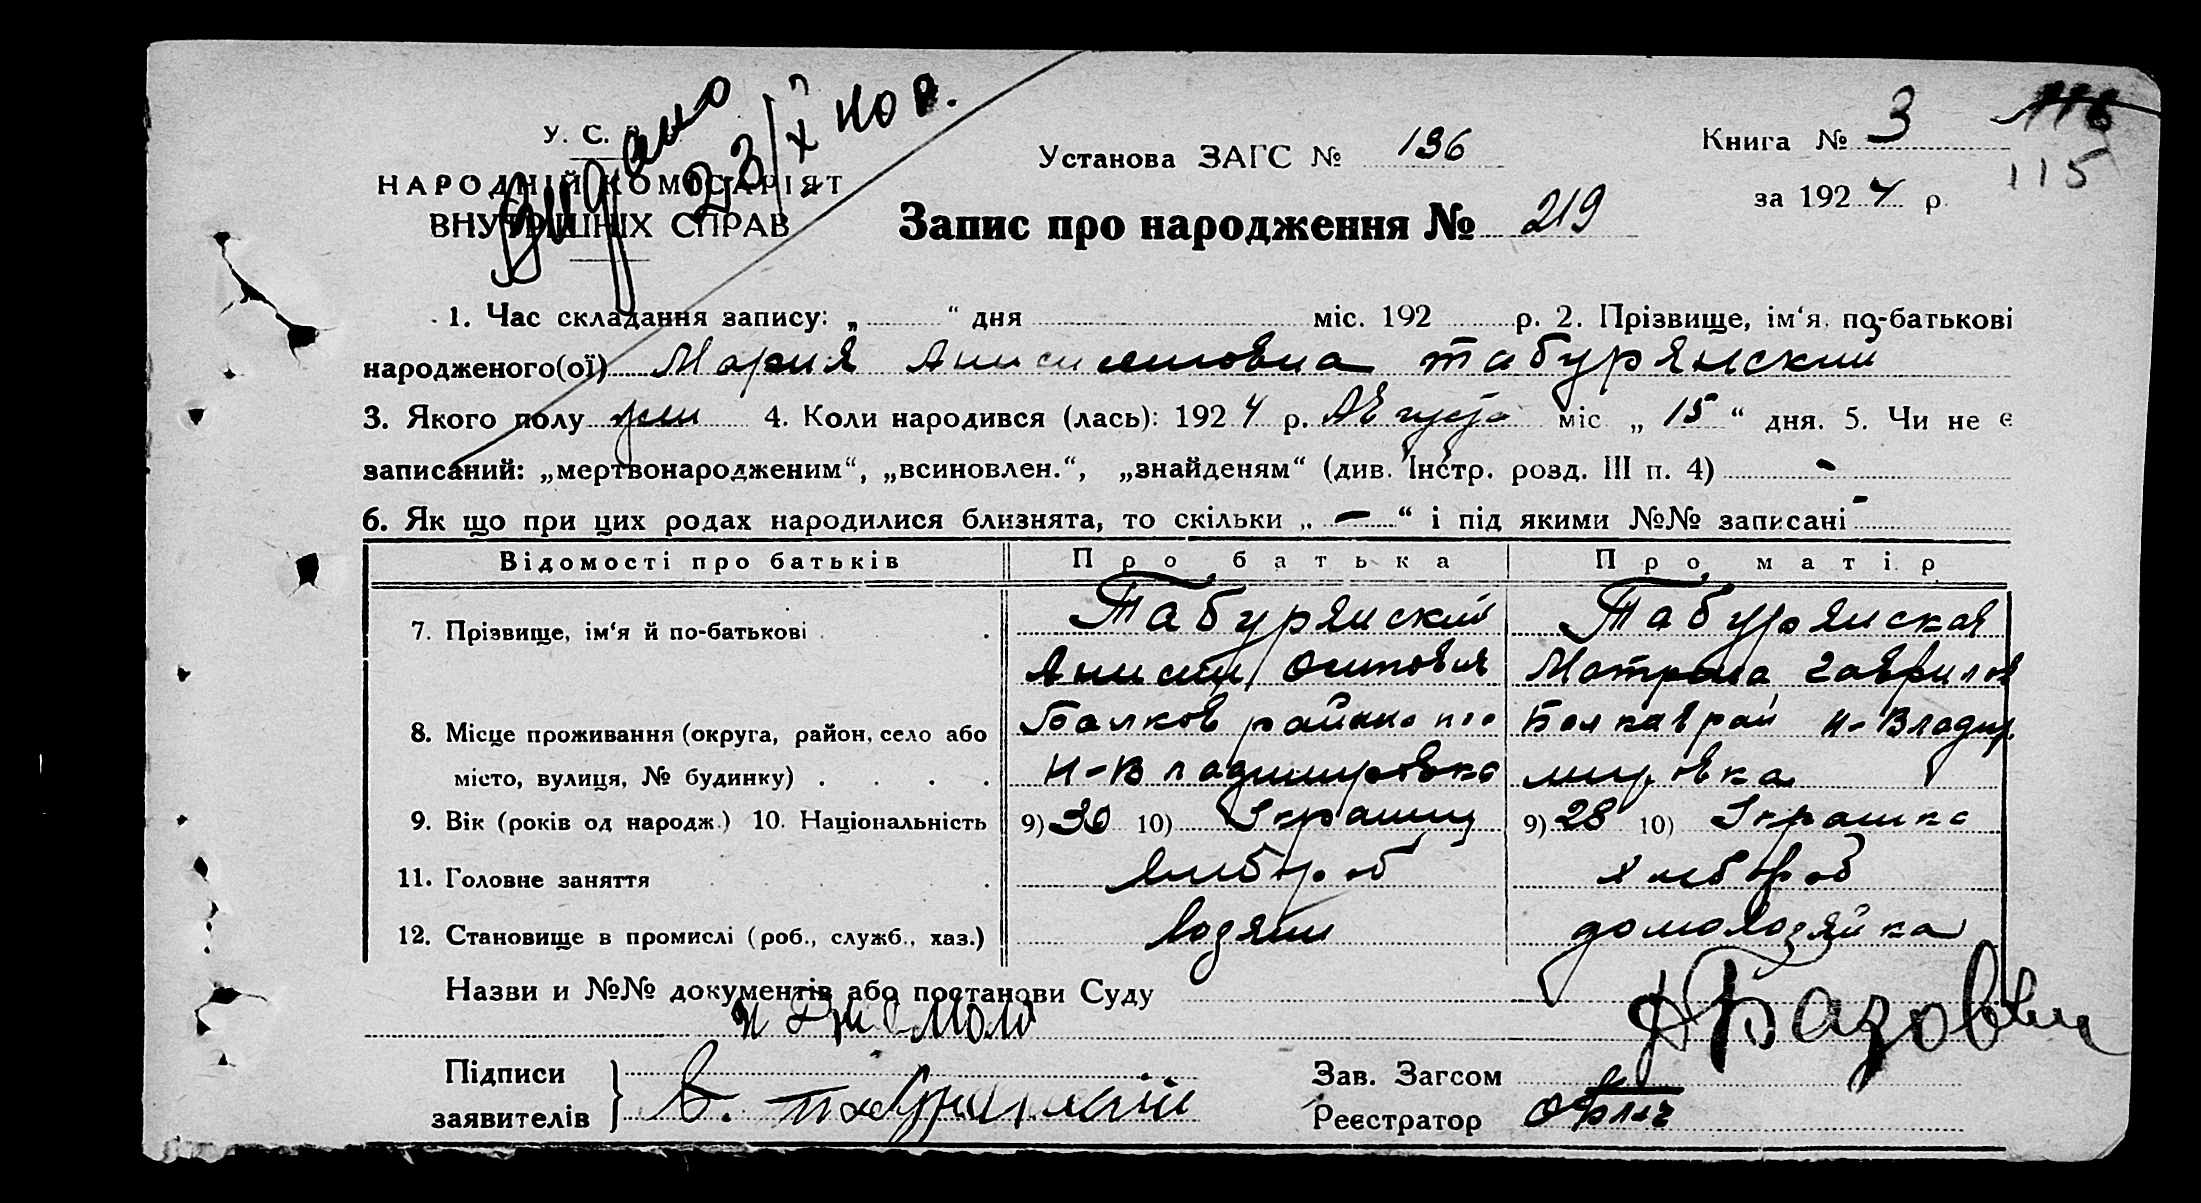 Видано 23/X
У. С.
НАРОДНІЙ КОМІСАРІЯТ
ВНУТРІШНІХ СПРАВ
Установа ЗАГС № 136
Книга № 3
115
за 1924 р.
Запис про народження № 219
1. Час складання запису: „ “ дня міс. 192 р. 2. Прізвище, ім‘я, по-батькові
народженого(ої) Мария Анисимовна Табурянский
3. Якого полу жен 4. Коли народився (лась): 1924 р. Августа міс „ 15 “ дня. 5. Чи не є
записаний: „мертвонародженим“, „всиновлен.“, „знайденям“ (див. Інстр. розд. III п. 4) -
6. Як що при цих родах народилися близнята, то скільки „ - “ і під якими №№ записані -
Відомості про батьків Про батька Про матір
7. Прізвище, ім‘я й по-батькові . . Табурянский Табурянская
Анисим Осипович Мотрона Гаврилов
8. Місце проживання (округа, район, село або Балков района Н-Владир
місто, вулиця, № будинку) . . . . Н-Владимировка мировка
9. Вік (років од народж.) 10. Національність 9) 30 10) 9) 28 10)
11. Головне заняття . . хлебороб хлебороб
12. Становище в промислі (роб., служб., хаз.) хозяин домохозяйка
Назви и №№ документів або постанови Суду
Підписи
Зав. Загсом
заявителів
Реєстратор